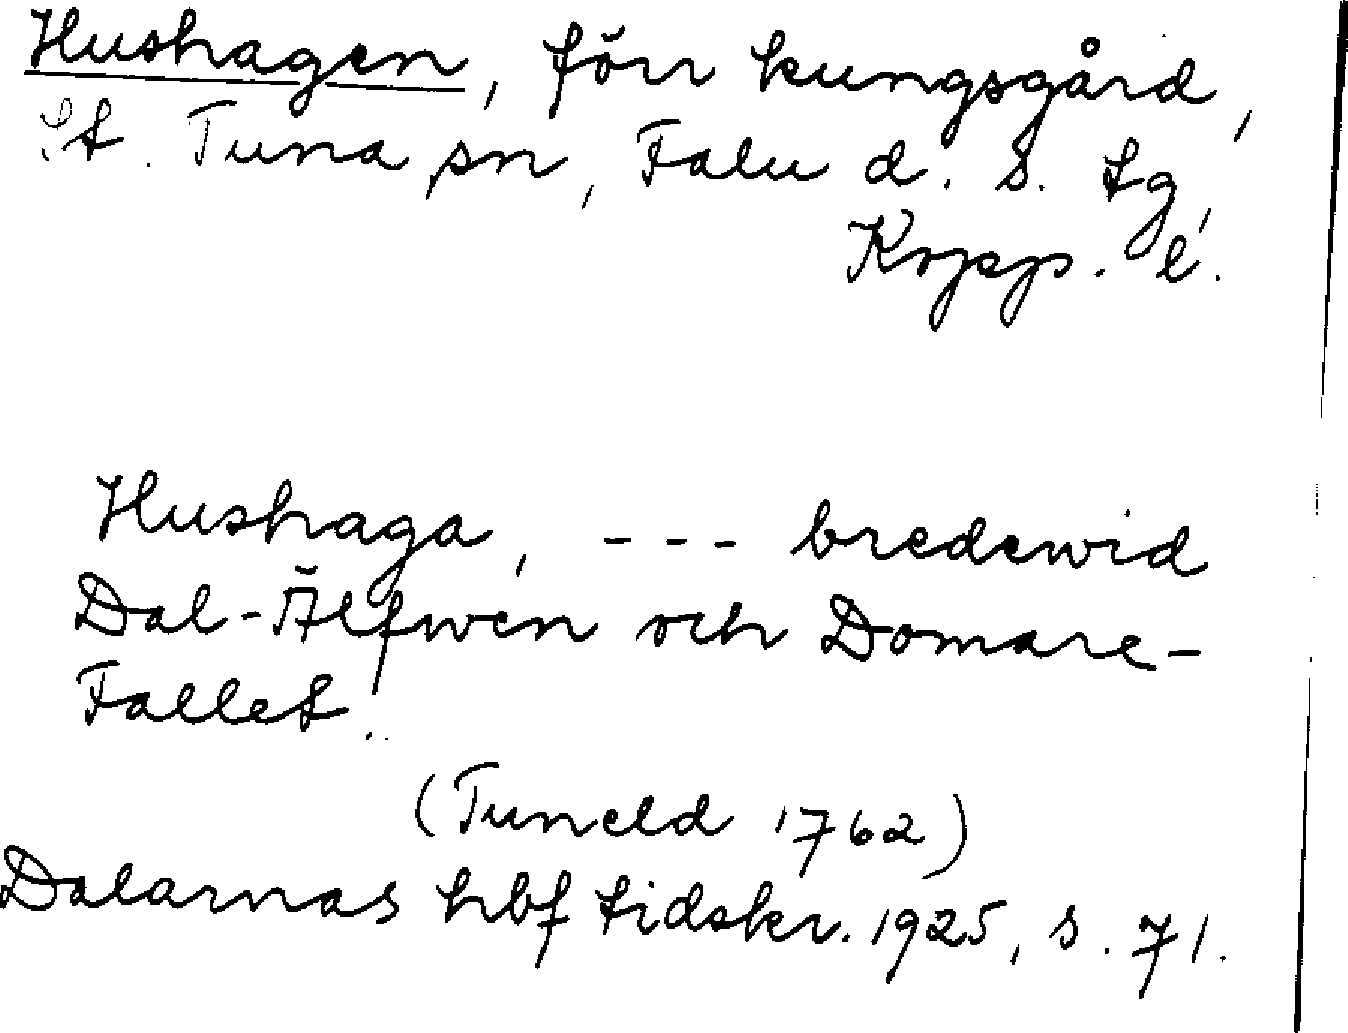 Hushagen, förr kungsgård,
St. Tuna sn, Falu d. s. tg,
Kopp. l.
Hushaga, --- bredewid
Dal-Älfwen och Domare-
Fallet.
(Tuneld 1762)
Dalarnas hbf tidskr. 1925, s. 71.